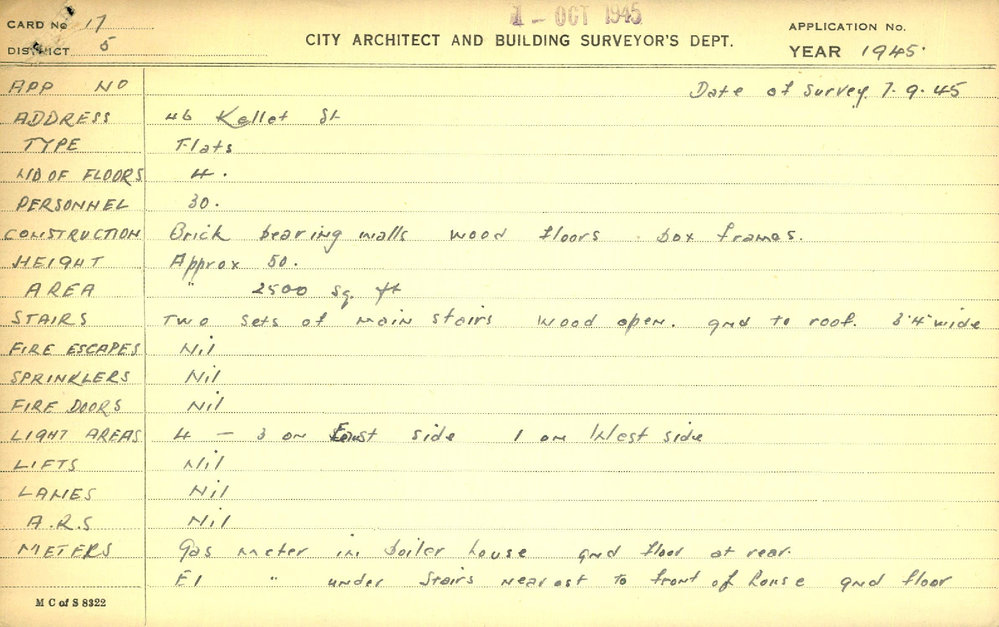 1 - OCT 1945
CARD No 17
DISTRICT 5
CITY ARCHITECT AND BUILDING SURVEYOR'S DEPT.
APPLICATION No.
YEAR 1945.
APP NO Date of Survey 7.9.45
ADDRESS 46 Kellet St
TYPE Flats
NO OF FLOORS 4.
PERSONNEL 30.
CONSTRUCTION Brick bearing walls wood floors. box frames.
HEIGHT Approx 50.
AREA " 2500 sq. ft
STAIRS Two sets of main stairs wood open. gnd to roof. 3'4" wide
FIRE ESCAPES Nil
SPRINKLERS Nil
FIRE DOORS Nil
LIGHT AREAS 4 - 3 on East side 1 on West side
LIFTS Nil
LANES Nil
A.R.S Nil
METERS Gas meter in boiler house gnd floor at rear.
El " under stairs nearest to front of house gnd floor
M C of S 8322